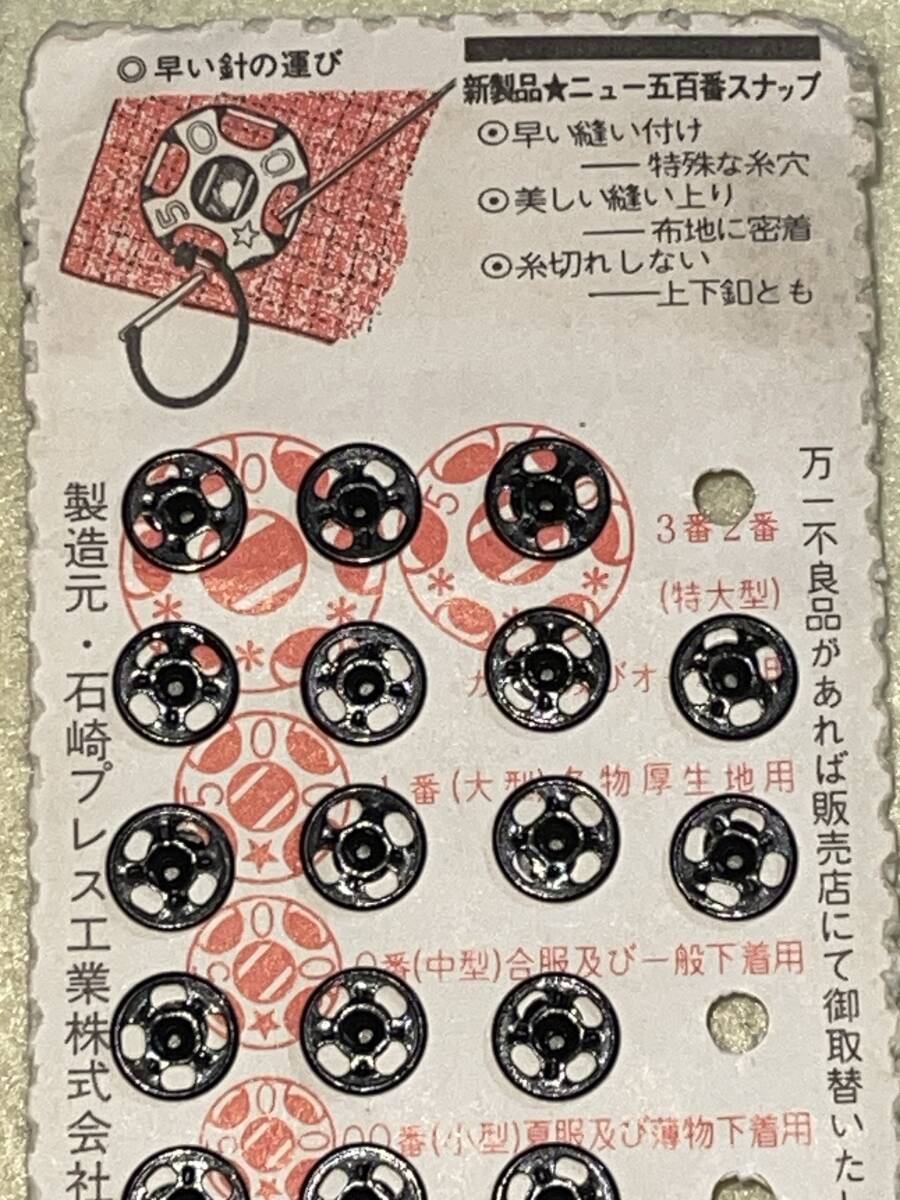 ◎早い針の運び
新製品★ニュー五百番スナップ
⊙早い縫い付け
――特殊な糸穴
⊙美しい縫い上り
――布地に密着
⊙糸切れしない
――上下釦とも
5 0 0 ☆
製造元・石崎プレス工業株式会社
3番2番
(特大型)
番(大型)冬物厚生地用
0番(中型)合服及び一般下着用
00番(小型)夏服及び薄物下着用
万一不良品があれば販売店にて御取替いた